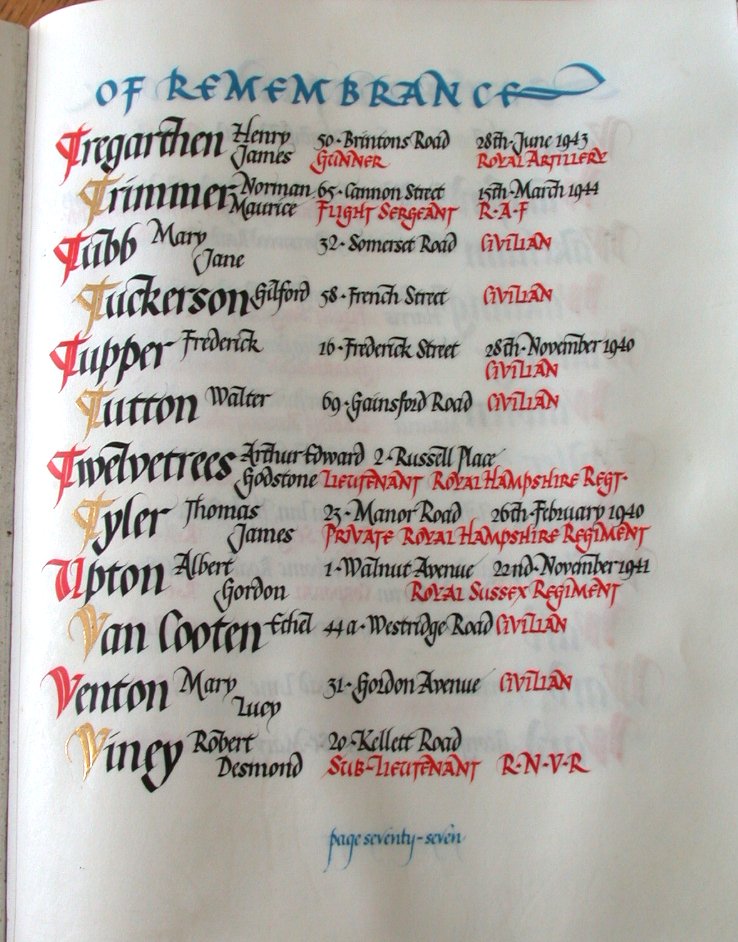 OF REMEMBRANCE
Tregarthen Henry James 50·Brintons Road 28th·June 1943
GUNNER ROYAL ARTILLERY
Trimmer Norman Maurice 65·Cannon Street 15th·March 1944
FLIGHT SERGEANT R·A·F
Tubb Mary Jane 32·Somerset Road CIVILIAN
Tuckerson Gilford 58·French Street CIVILIAN
Tupper Frederick 16·Frederick Street 28th·November 1940
CIVILIAN
Tutton Walter 69·Gainsford Road CIVILIAN
Twelvetrees Arthur Edward 2·Russell Place
Godstone LIEUTENANT ROYAL HAMPSHIRE REGT·
Tyler Thomas 23·Manor Road 26th·February 1940
James PRIVATE ROYAL HAMPSHIRE REGIMENT
Upton Albert 1·Walnut Avenue 22nd·November 1941
Gordon ROYAL SUSSEX REGIMENT
Van Cooten Ethel 44a·Westridge Road CIVILIAN
Venton Mary 31·Gordon Avenue CIVILIAN
Lucy
Viney Robert 20·Kellett Road
Desmond SUB-LIEUTENANT R·N·V·R
page seventy-seven